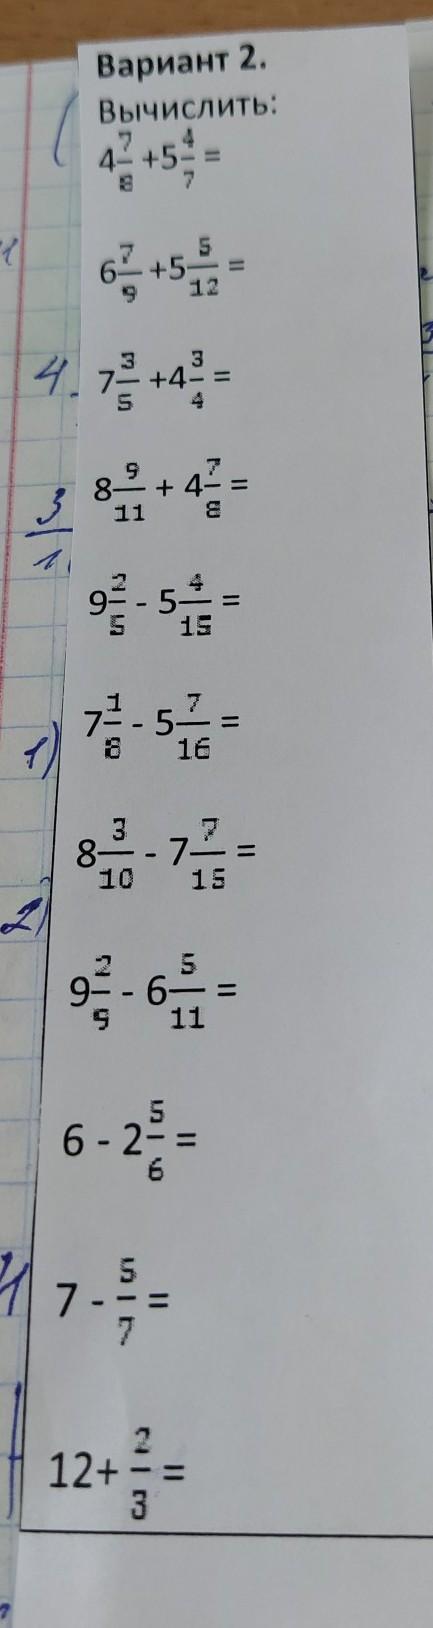 Вариант 2.
Вычислить:
4 7/8 + 5 4/7 =
6 7/9 + 5 5/12 =
7 3/5 + 4 3/4 =
8 9/11 + 4 7/8 =
9 2/5 - 5 4/15 =
7 1/8 - 5 7/16 =
8 3/10 - 7 7/15 =
9 2/9 - 6 5/11 =
6 - 2 5/6 =
7 - 5/7 =
12 + 2/3 =
4
3
1)
2)